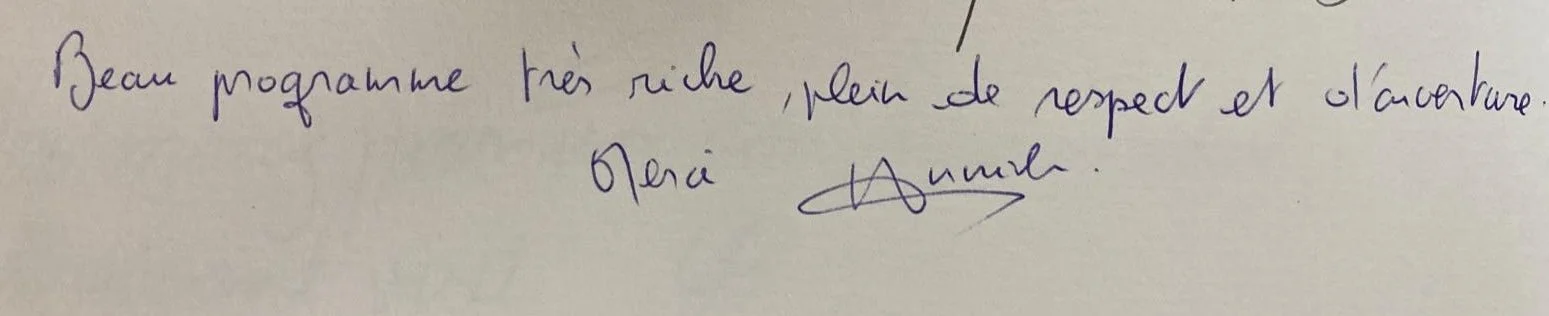 Beau programme très riche, plein de respect et d'ouverture.
Merci